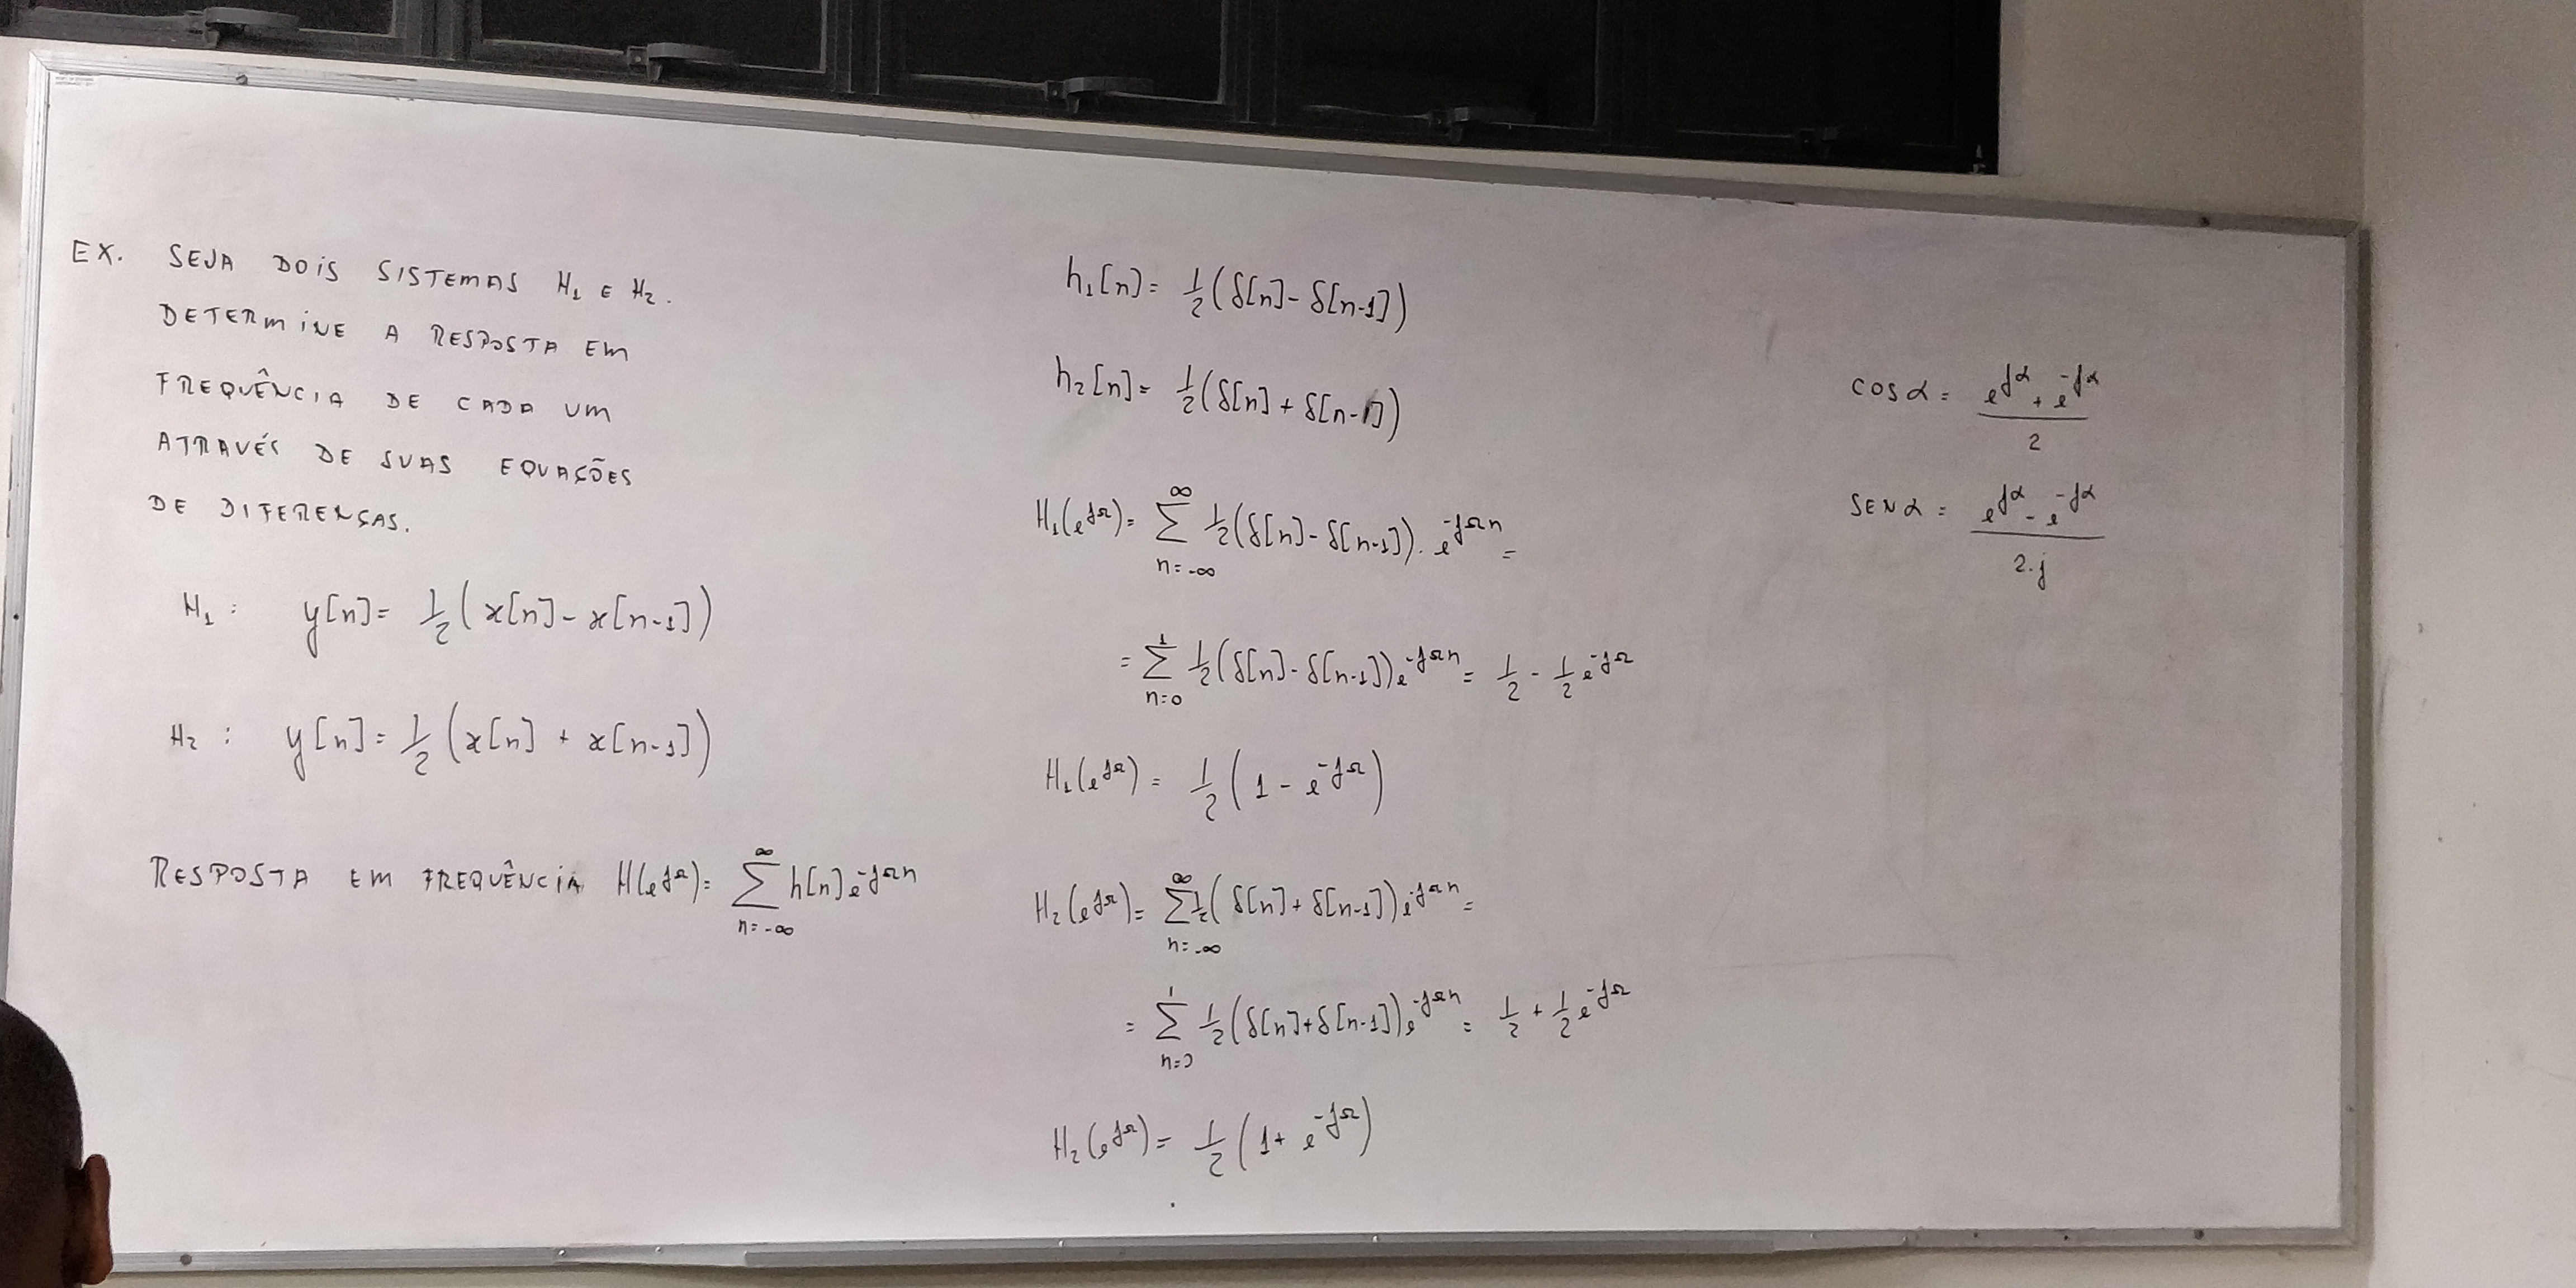 EX. SEJA DOIS SISTEMAS H₁ E H₂.
DETERMINE A RESPOSTA EM
FREQUÊNCIA DE CADA UM
ATRAVÉS DE SUAS EQUAÇÕES
DE DIFERENÇAS.
H₁ : y[n] = 1/2 (x[n] - x[n-1])
H₂ : y[n] = 1/2 (x[n] + x[n-1])
RESPOSTA EM FREQUÊNCIA H(e^{jΩ}) = ∑_{n=-∞}^{∞} h[n] e^{-jΩn}
h₁[n] = 1/2 (δ[n] - δ[n-1])
h₂[n] = 1/2 (δ[n] + δ[n-1])
H₁(e^{jΩ}) = ∑_{n=-∞}^{∞} 1/2 (δ[n] - δ[n-1]) . e^{-jΩn} =
= ∑_{n=0}^{1} 1/2 (δ[n] - δ[n-1]) e^{-jΩn} = 1/2 - 1/2 e^{-jΩ}
H₁(e^{jΩ}) = 1/2 (1 - e^{-jΩ})
H₂(e^{jΩ}) = ∑_{n=-∞}^{∞} 1/2 (δ[n] + δ[n-1]) e^{-jΩn} =
= ∑_{n=0}^{1} 1/2 (δ[n] + δ[n-1]) e^{-jΩn} = 1/2 + 1/2 e^{-jΩ}
H₂(e^{jΩ}) = 1/2 (1 + e^{-jΩ})
COS α = (e^{jα} + e^{-jα}) / 2
SEN α = (e^{jα} - e^{-jα}) / 2.j